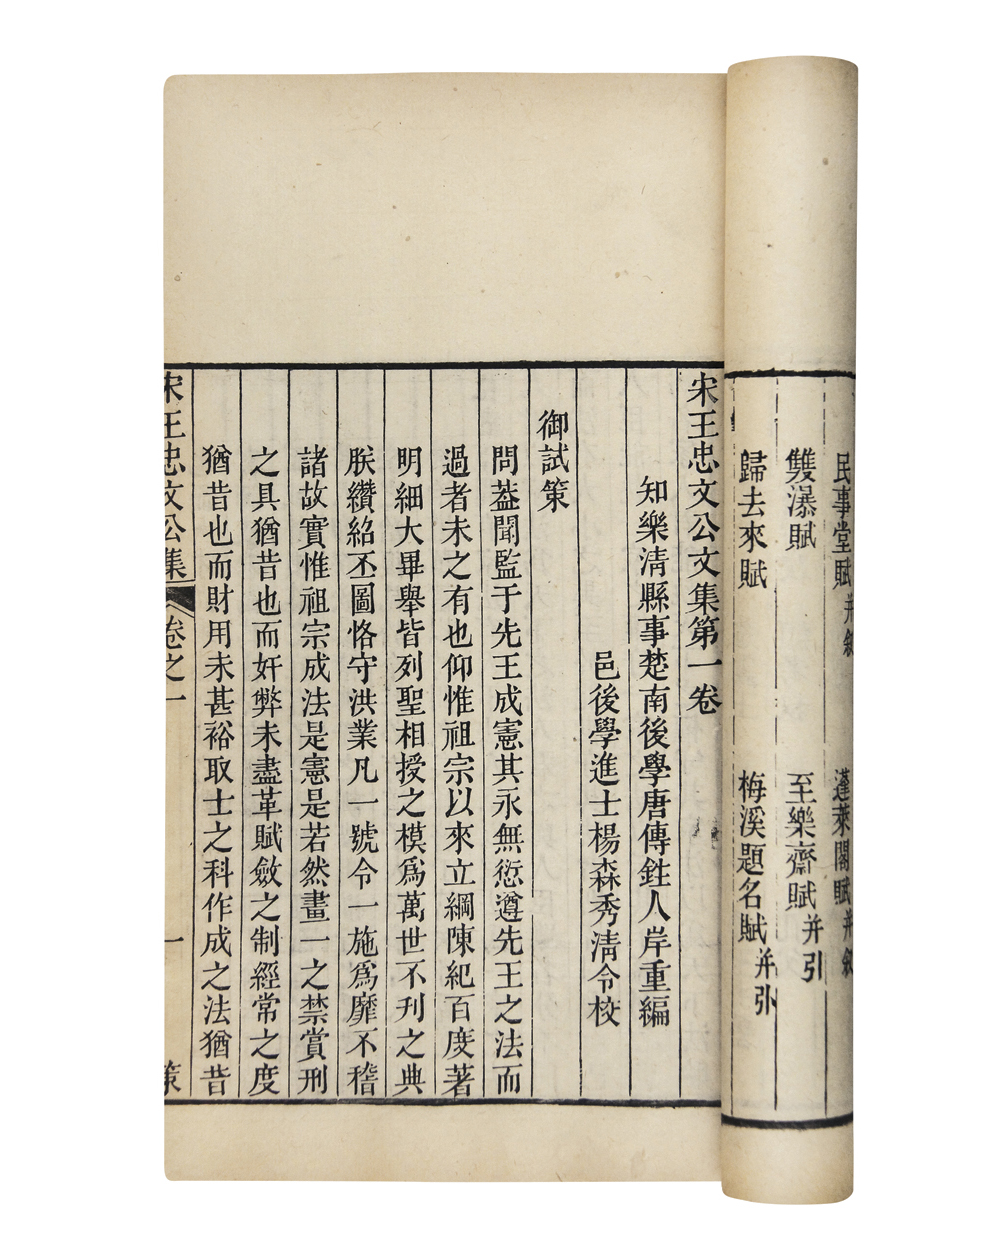 民事堂賦并敘
蓬萊閣賦并敘
雙瀑賦
至樂齋賦并引
歸去來賦
梅溪題名賦并引
宋王忠文公文集第一卷
知樂清縣事楚南後學唐傳鉎人岸重編
邑後學進士楊森秀清令校
御試策
問葢聞監于先王成憲其永無愆遵先王之法而
過者未之有也仰惟祖宗以來立綱陳紀百度著
明細大畢舉皆列聖相授之模爲萬世不刋之典
朕纘紹丕圖恪守洪業凡一號令一施爲靡不稽
諸故實惟祖宗成法是憲是若然畫一之禁賞刑
之具猶昔也而奸弊未盡革賦斂之制經常之度
猶昔也而財用未甚裕取士之科作成之法猶昔
宋王忠文公集
卷之一
一
策